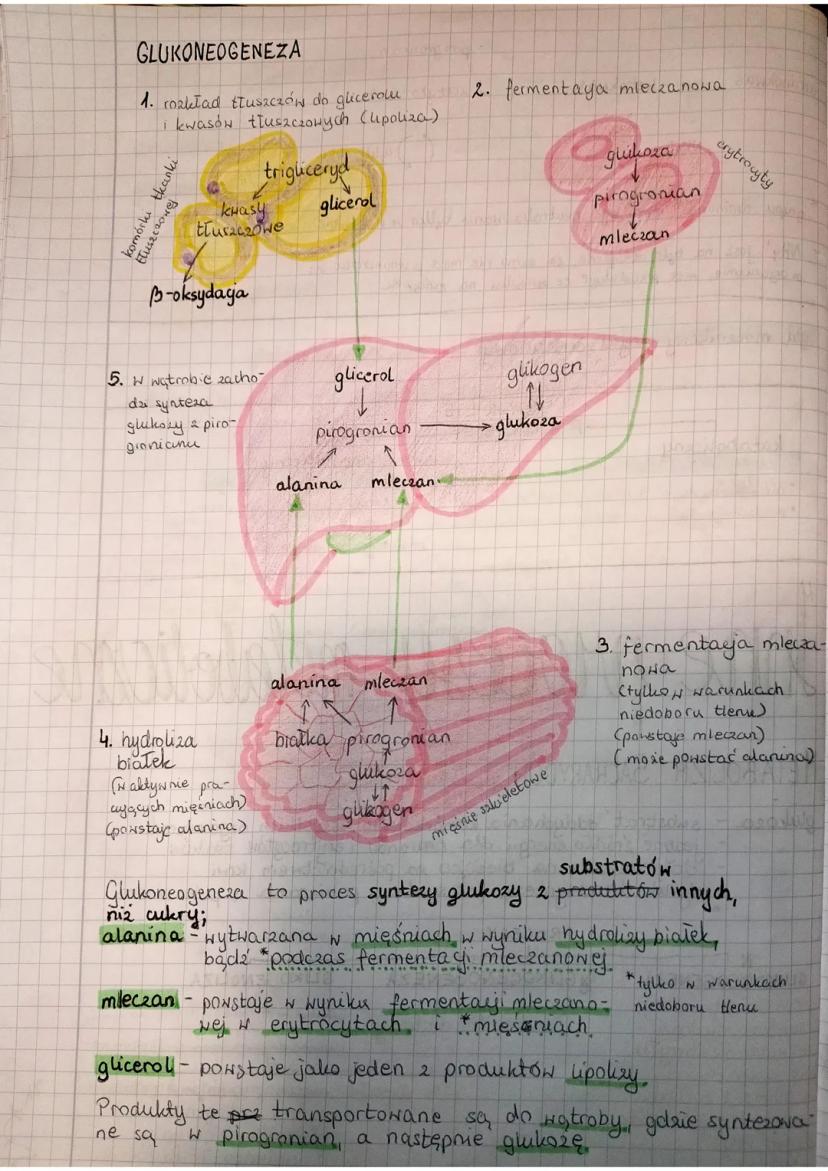 GLUKONEOGENEZA
1. rozkład tłuszczów do glicerolu
i kwasów tłuszczowych (lipoliza)
2. fermentacja mleczanowa
komórki tkanki
tłuszczowej
trigliceryd
kwasy
tłuszczowe
glicerol
β-oksydacja
glukoza
pirogronian
mleczan
erytrocyty
5. w wątrobie zacho-
dzi synteza
glukozy z piro-
gronianu
glicerol
pirogronian
alanina
mleczan
glikogen
glukoza
3. fermentacja mlecza-
nowa
(tylko w warunkach
niedoboru tlenu)
(powstaje mleczan)
(może powstać alanina)
alanina mleczan
białka pirogronian
glukoza
glikogen
mięśnie szkieletowe
4. hydroliza
białek
(w aktywnie pra-
cujących mięśniach)
(powstaje alanina)
substratów
Glukoneogeneza to proces syntezy glukozy z produktów innych,
niż cukry;
alanina - wytwarzana w mięśniach w wyniku hydrolizy białek,
bądź *podczas fermentacji mleczanowej
*tylko w warunkach
niedoboru tlenu
mleczan - powstaje w wyniku fermentacji mleczano-
wej w erytrocytach i *mięśniach
glicerol - powstaje jako jeden z produktów lipolizy
Produkty te transportowane są do wątroby, gdzie syntezowa-
ne są w pirogronian, a następnie glukozę.